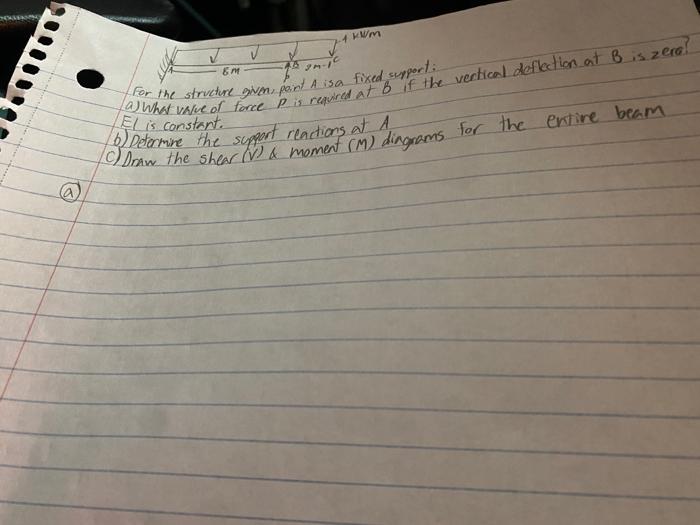 1 kN/m
A 8m B 2m C
P
For the structure given, point A is a fixed support:
a) What value of force P is required at B if the vertical deflection at B is zero?
EI is constant.
b) Determine the support reactions at A
c) Draw the shear (V) & moment (M) diagrams for the entire beam
a